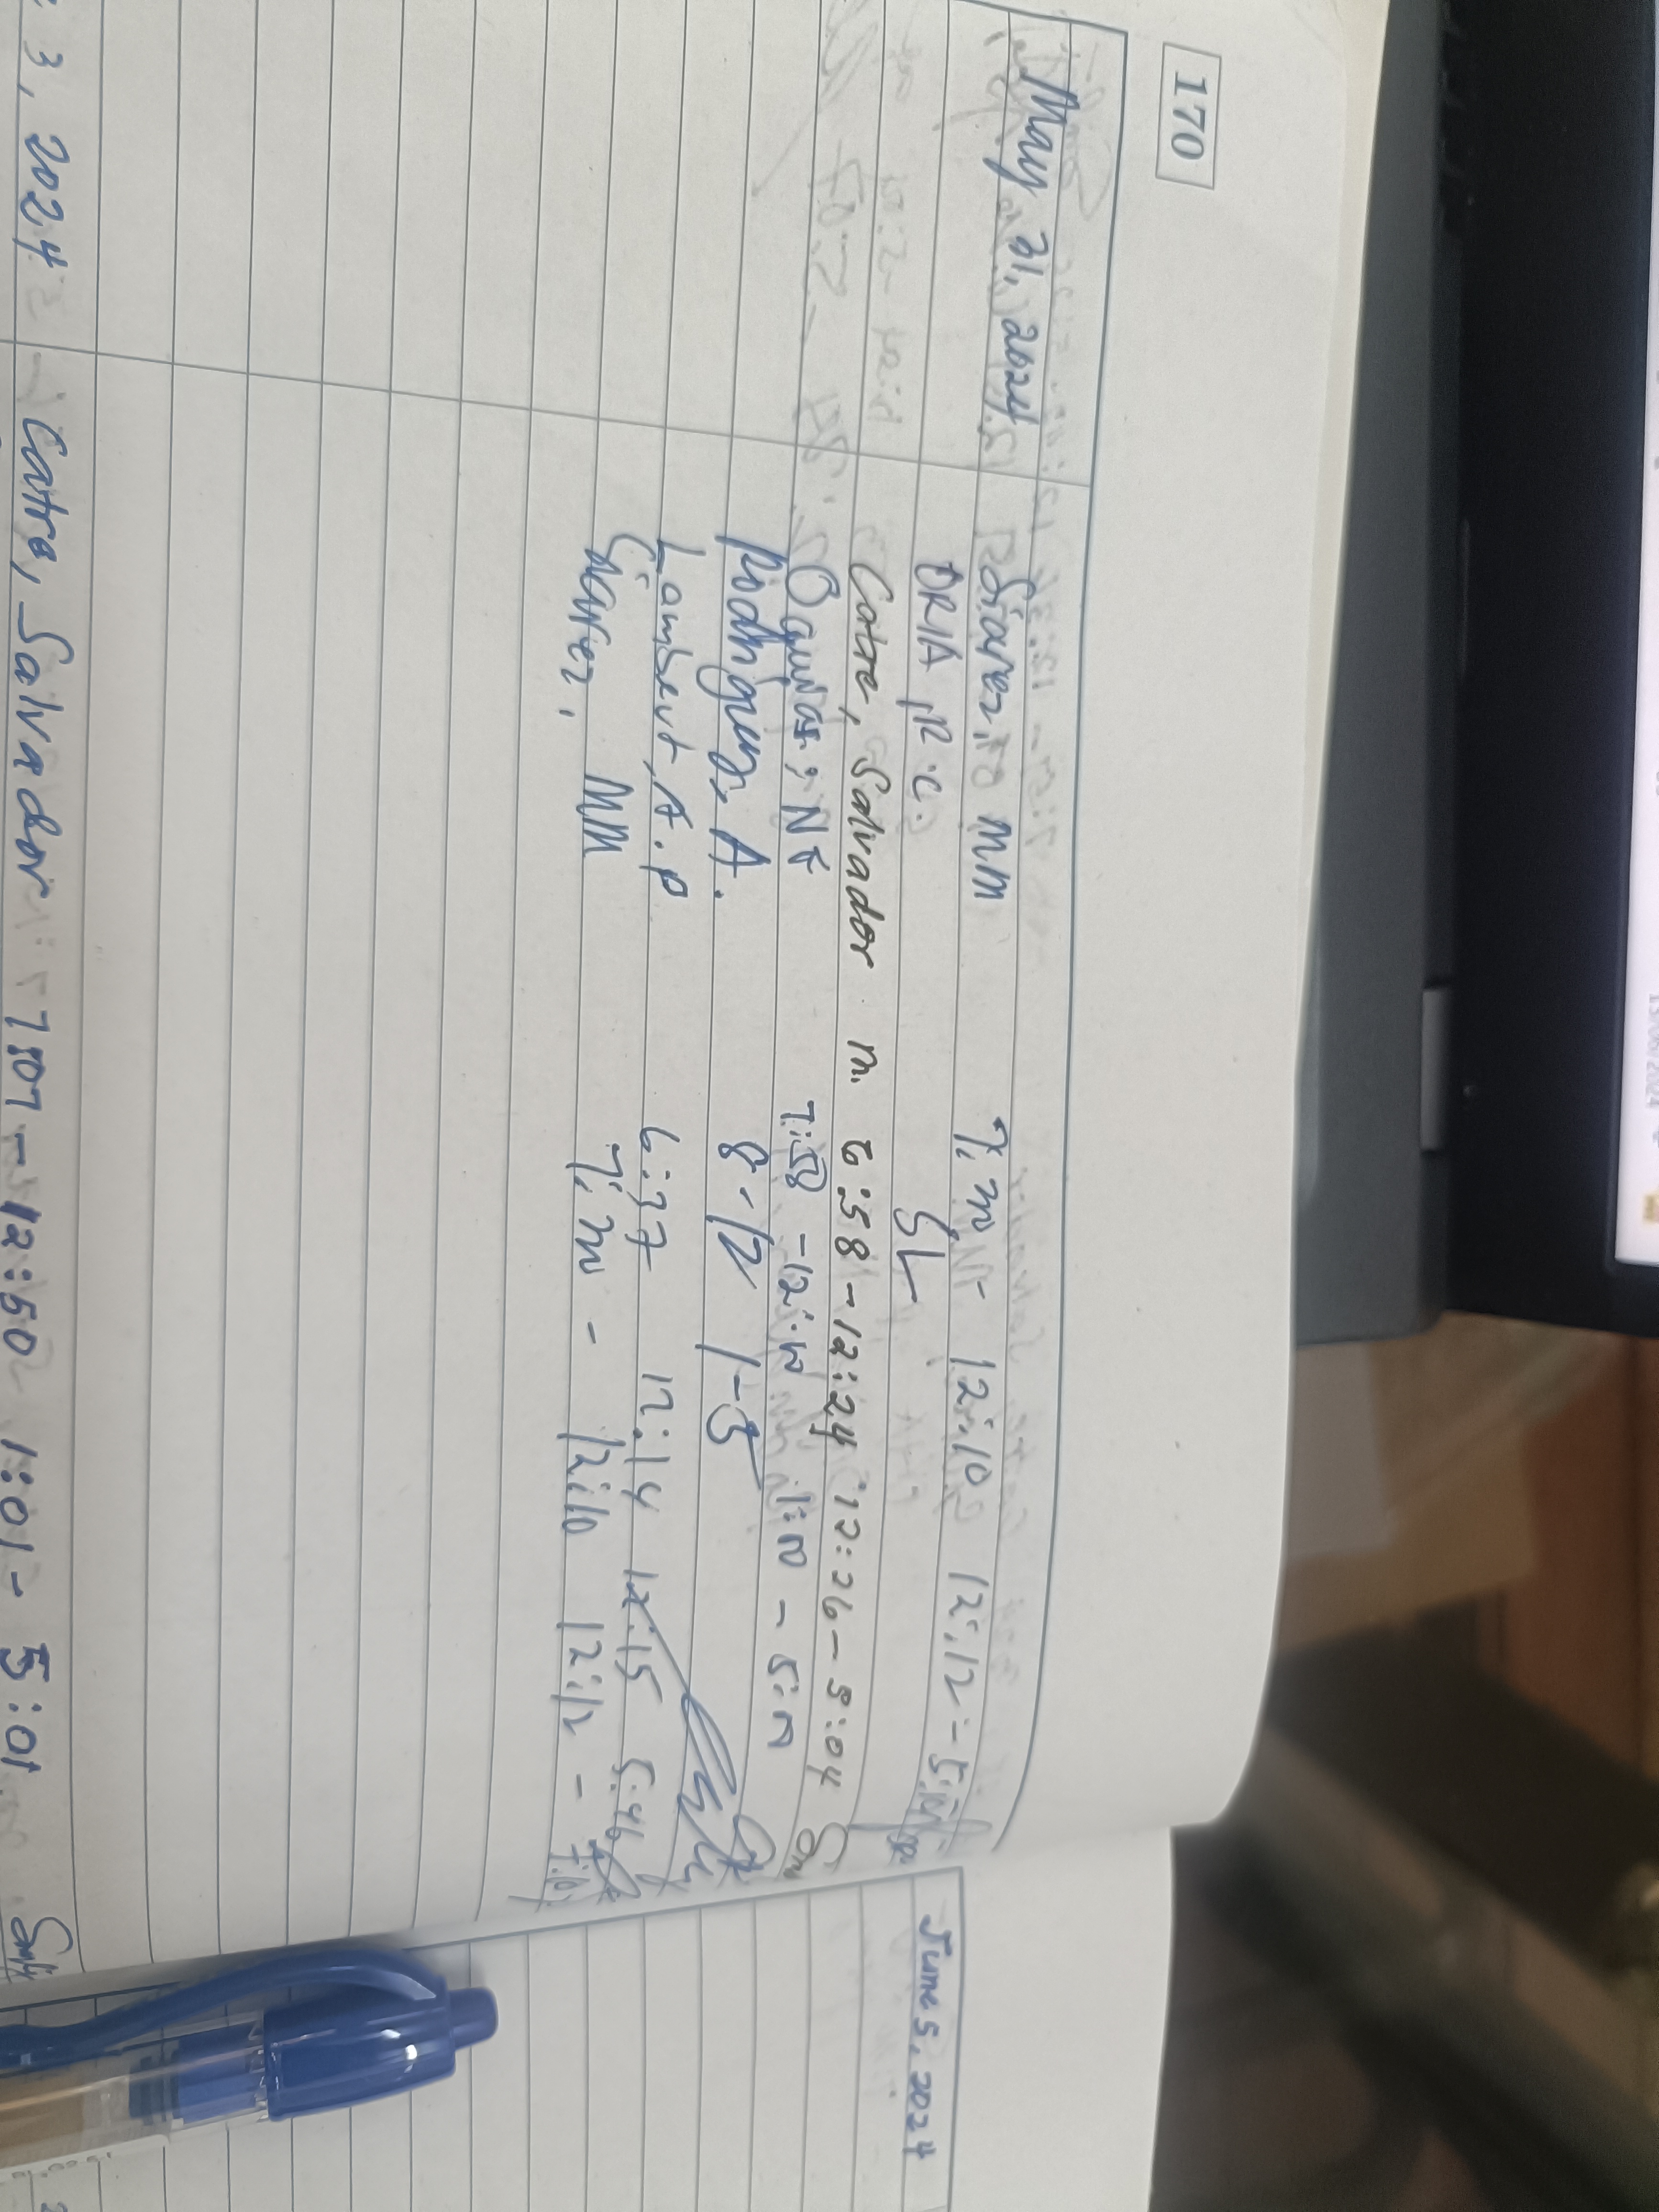 170
May 31, 2024 Siarez, MM 7:00 - 12:10 12:12 - 5:
ORIA, R.C. SL
Catre, Salvador m. 6:58 - 12:24 12:26 - 5:04
NF 7:58 - 12:00 1:00 - 5:00
Rodriguez, A. 8-12 1-5
Lambert, A.P 6:37 12:14 12:15 5:46
MM 7:00 - 12:10 12:12 -
3, 2024 Catre, Salvador 7:07 - 12:50 1:01 - 5:01
June 5, 2024